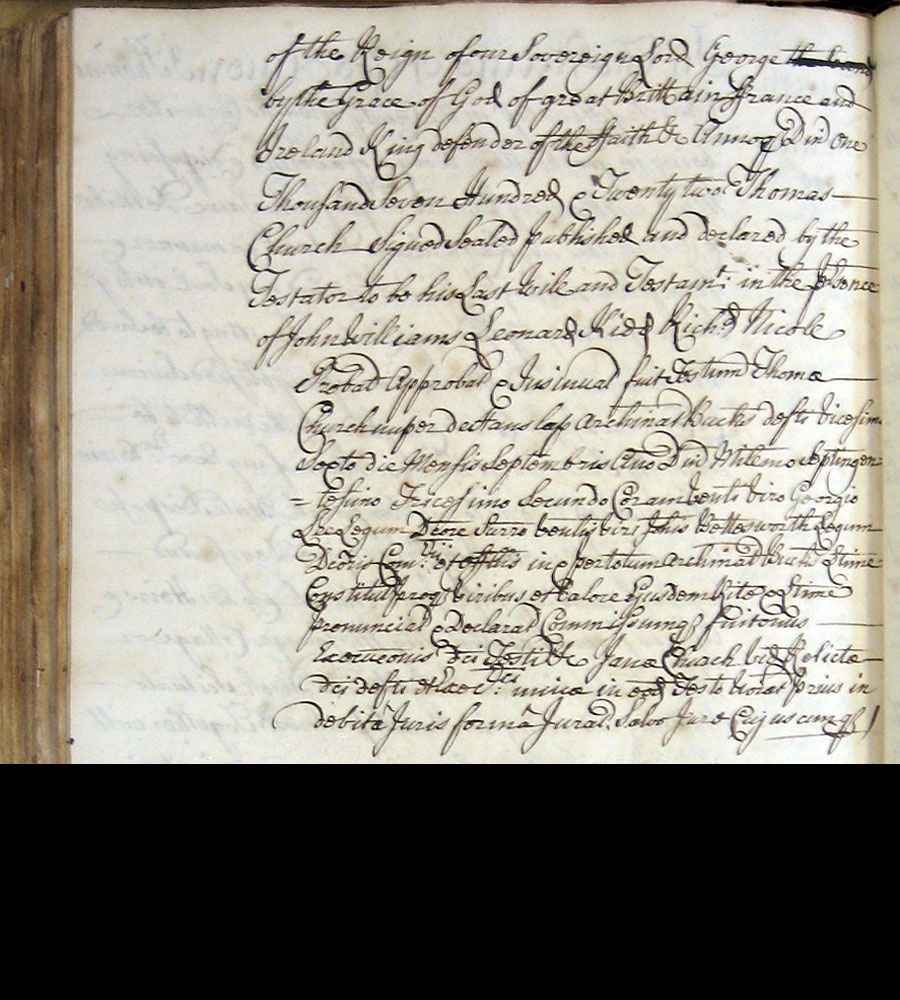 of the Reign of our Sovereign Lord George
by the Grace of God of great Brittain ffrance and
Ireland King defender of the ffaith &c Annoq Dni One
Thousand Seven Hundred & Twenty two Thomas
Church Signed Sealed published and declared by the
Testator to be his Last Will and Testamt: in the psence
of John Williams Leonard Kidd Richd Nicole
Probat Approbat & Insinuat fuit Testum Thomæ
Church nuper de laps Archinat Bucks defti Vicesim
Sexto die Mensis Septembris Ano Dni Milemo Septingen
= tesimo Tricesimo Secundo Coram Viro Georgio
Lee Legum Dcore Surro venlis viri Johis Bettesworth Legum
Dcoris Com: et offlis in & per totum Archinat Bucks Ltime
Constitut proq viribus et Valore Ejusdem Rite & Ltime
pronunciat & Declarat Commissumq fuit onus
Execuconis dci Testi &c Janæ Church vid Relictæ
dci defti et Exec: in eod Testo noiat prius in
debitâ Juris formâ Jurat. Salvo Jure Cujuscumq